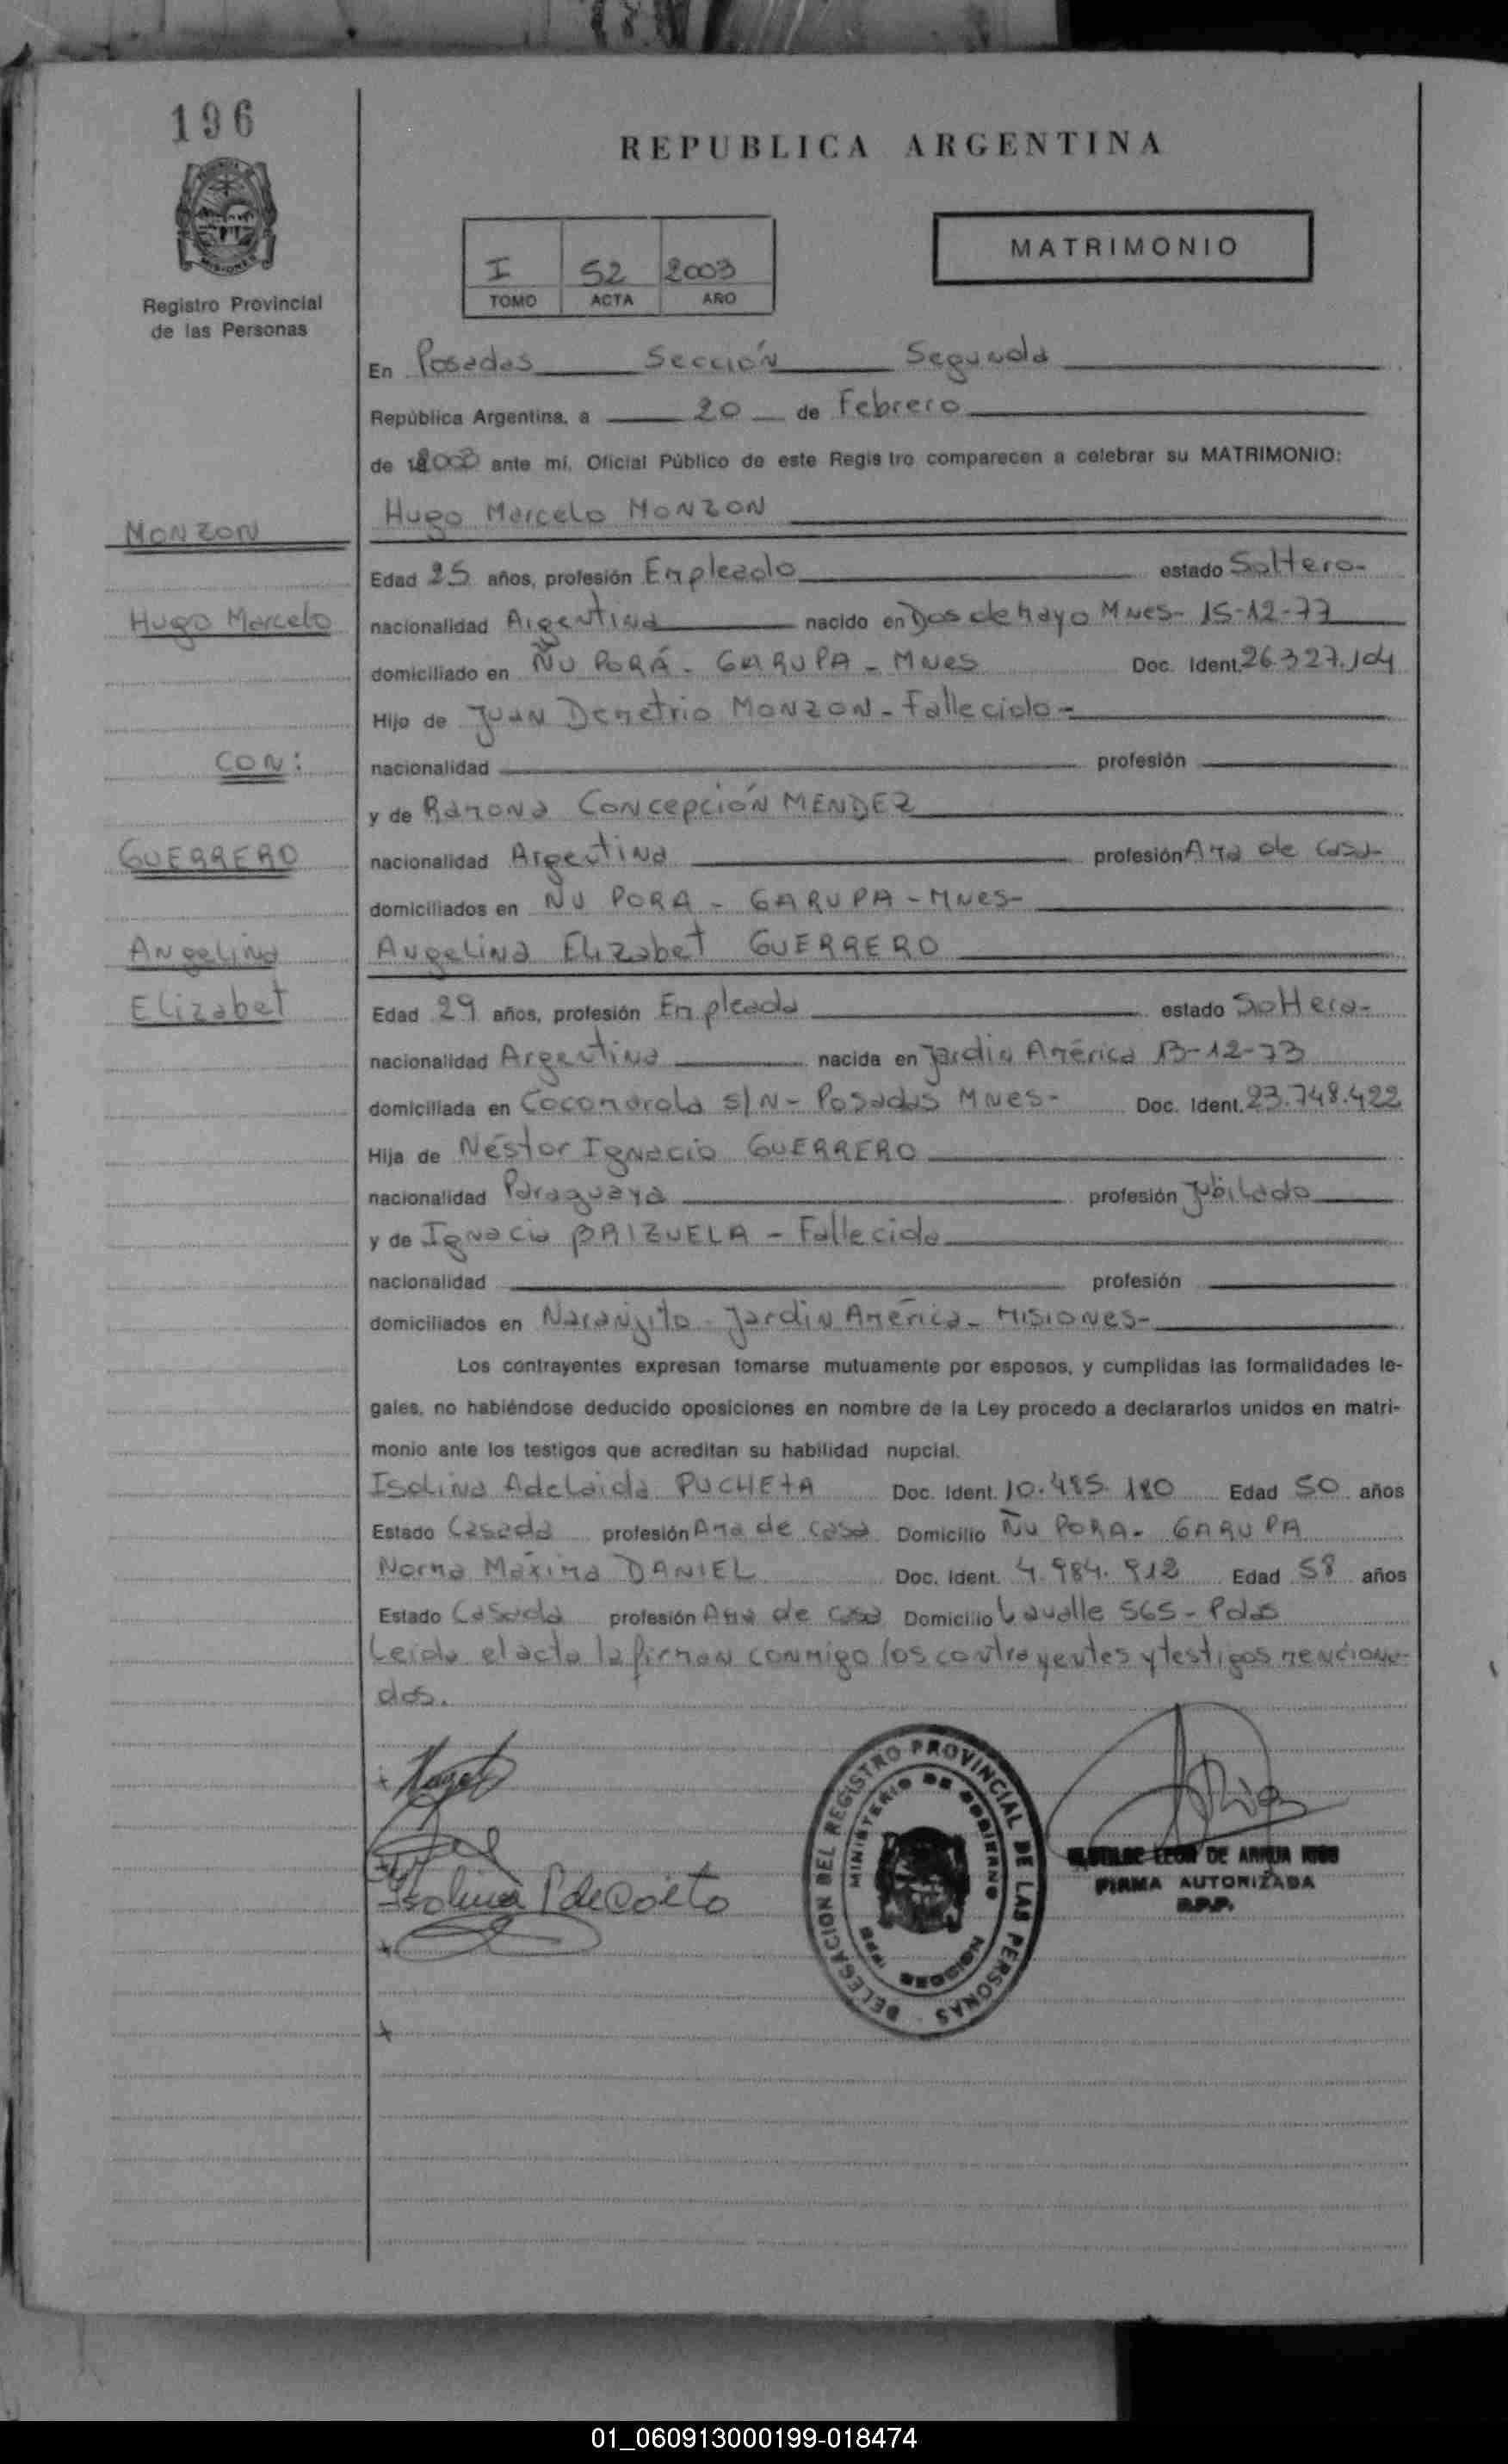 196
REPUBLICA ARGENTINA
MATRIMONIO
I 52 2003
TOMO ACTA AÑO
Registro Provincial
de las Personas
En Posadas Sección Segunda
República Argentina, a 20 de Febrero
de 2003 ante mí, Oficial Público de este Registro comparecen a celebrar su MATRIMONIO:
MONZON
Hugo Marcelo
CON:
GUERRERO
Angelina
Elizabet
Hugo Marcelo MONZON
Edad 25 años, profesión Empleado estado Soltero-
nacionalidad Argentina nacido en Dos de Mayo Mnes- 15-12-77
domiciliado en ÑU PORÁ - GARUPA - Mnes Doc. Ident. 26.327.104
Hijo de Juan Demetrio MONZON - Fallecido-
nacionalidad profesión
y de Ramona Concepción MENDEZ
nacionalidad Argentina profesión Ama de Casa-
domiciliados en ÑU PORA - GARUPA - Mnes-
Angelina Elizabet GUERRERO
Edad 29 años, profesión Empleada estado Soltera-
nacionalidad Argentina nacida en Jardin América 13-12-73
domiciliada en Cocomarola s/N - Posadas Mnes- Doc. Ident. 23.748.422
Hija de Néstor Ignacio GUERRERO
nacionalidad Paraguaya profesión Jubilado
y de Ignacia BRIZUELA - Fallecida
nacionalidad profesión
domiciliados en Naranjito - Jardin América - Misiones-
Los contrayentes expresan tomarse mutuamente por esposos, y cumplidas las formalidades le-
gales, no habiéndose deducido oposiciones en nombre de la Ley procedo a declararlos unidos en matri-
monio ante los testigos que acreditan su habilidad nupcial.
Isolina Adelaida PUCHETA Doc. Ident. 10.485.180 Edad 50 años
Estado Casada profesión Ama de casa Domicilio ÑU PORA - GARUPA
Norma Máxima DANIEL Doc. Ident. 4.984.912 Edad 58 años
Estado Casada profesión Ama de casa Domicilio Lavalle 565 - Pdas
Leida el acta la firman conmigo los contrayentes y testigos menciona-
dos.
Isolina P de Coito
DELEGACION DEL REGISTRO PROVINCIAL DE LAS PERSONAS
MINISTERIO DE GOBIERNO
MISIONES
LEON DE
FIRMA AUTORIZADA
R.P.P.
01_060913000199-018474